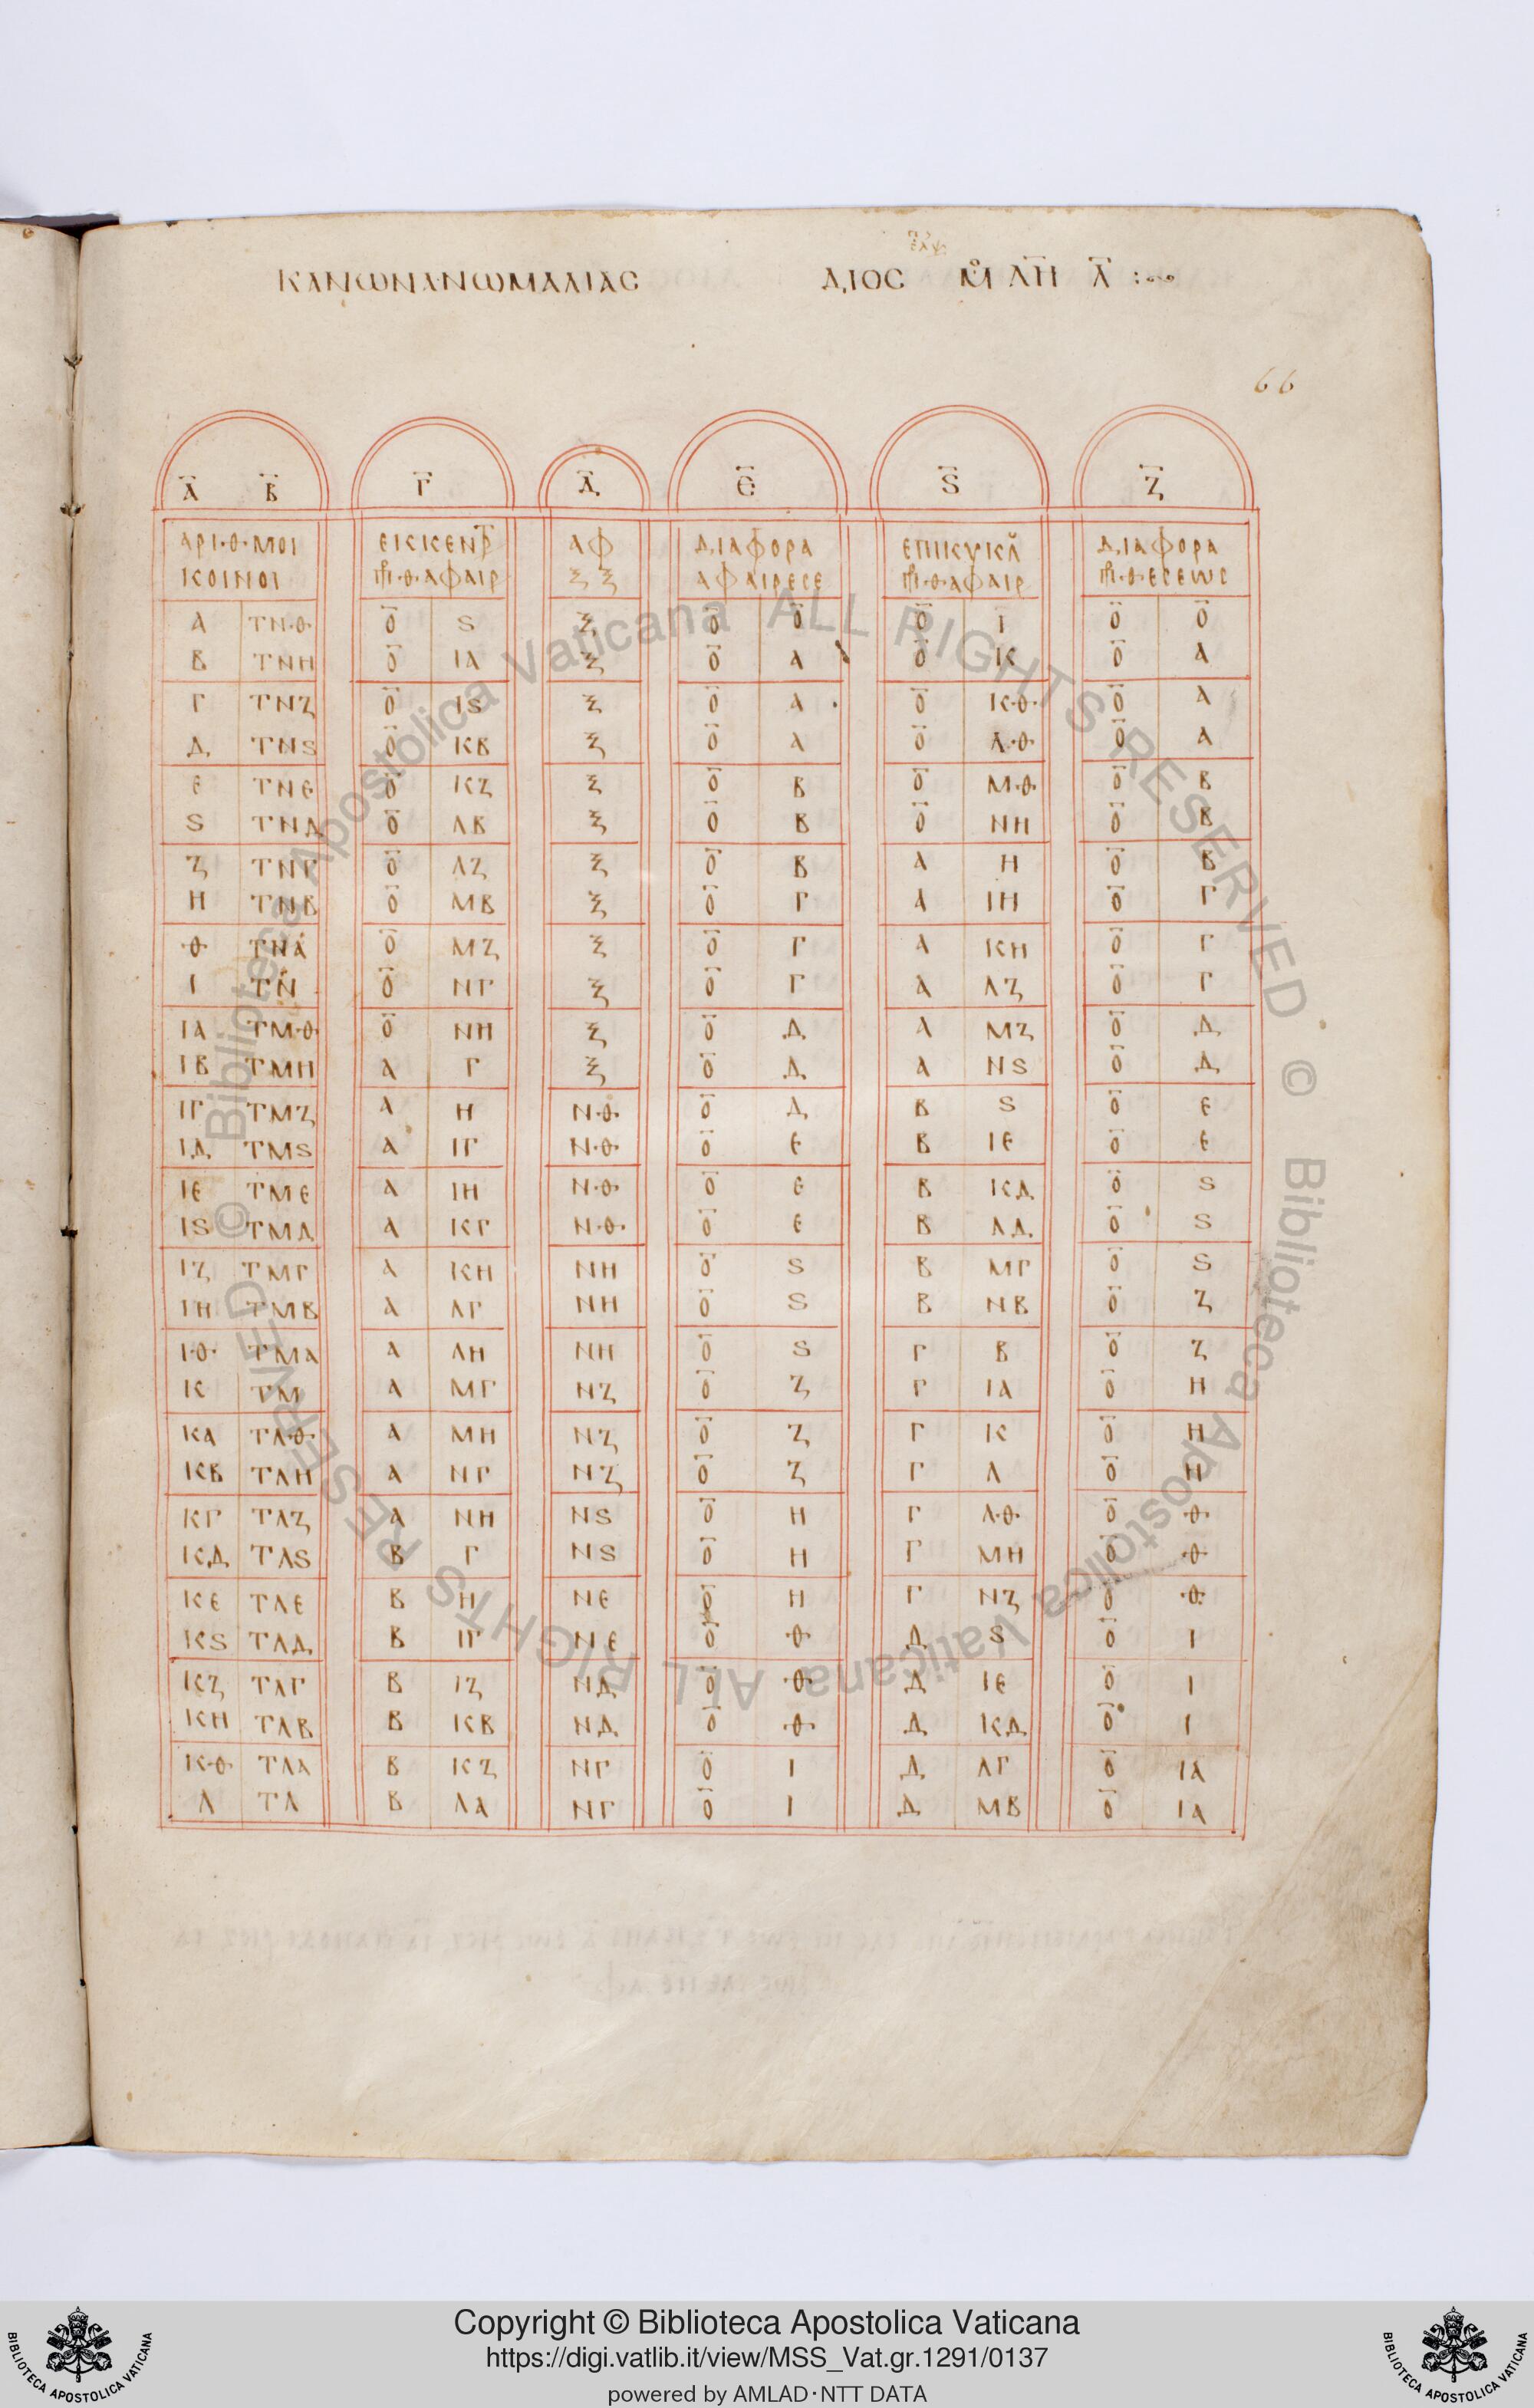 π͞ρ
ελψ
ΚΑΝΩΝ ΑΝΩΜΑΛΙΑС ΔΙΟС Μ̊ ΛΠ̅Η Λ̅ :∞
66
Α̅ Β̅ Γ̅ Δ̅ Ε̅ Ϛ̅ Ζ̅
ΑΡΙΘΜΟΙ ΕΙΚΚΕΝΤΡ ΑΦ ΔΙΑΦΟΡΑ ΕΠΙΚΥΚΛ ΔΙΑΦΟΡΑ
ΚΟΙΝΟΙ ΠΡΘΑΦΑΙΡ ΞΞ ΑΦΑΙΡΕСΕ ΠΡΘΑΦΑΙΡ ΠΡΘΕСΕΩС
Α ΤΝΘ Ο̅ Ϛ Ξ Ο̅ Ο̅ Ο̅ Ι Ο̅ Ο̅
Β ΤΝΗ Ο̅ ΙΑ Ξ Ο̅ Α Ο̅ Κ Ο̅ Α
Γ ΤΝΖ Ο̅ ΙϚ Ξ Ο̅ Α Ο̅ ΚΘ Ο̅ Α
Δ ΤΝϚ Ο̅ ΚΒ Ξ Ο̅ Α Ο̅ ΛΘ Ο̅ Α
Ε ΤΝΕ Ο̅ ΚΖ Ξ Ο̅ Β Ο̅ ΜΘ Ο̅ Β
Ϛ ΤΝΔ Ο̅ ΛΒ Ξ Ο̅ Β Ο̅ ΝΗ Ο̅ Β
Ζ ΤΝΓ Ο̅ ΛΖ Ξ Ο̅ Β Α Η Ο̅ Β
Η ΤΝΒ Ο̅ ΜΒ Ξ Ο̅ Γ Α ΙΗ Ο̅ Γ
Θ ΤΝΑ Ο̅ ΜΖ Ξ Ο̅ Γ Α ΚΗ Ο̅ Γ
Ι ΤΝ Ο̅ ΝΓ Ξ Ο̅ Γ Α ΛΖ Ο̅ Γ
ΙΑ ΤΜΘ Ο̅ ΝΗ Ξ Ο̅ Δ Α ΜΖ Ο̅ Δ
ΙΒ ΤΜΗ Α Γ Ξ Ο̅ Δ Α ΝϚ Ο̅ Δ
ΙΓ ΤΜΖ Α Η ΝΘ Ο̅ Δ Β Ϛ Ο̅ Ε
ΙΔ ΤΜϚ Α ΙΓ ΝΘ Ο̅ Ε Β ΙΕ Ο̅ Ε
ΙΕ ΤΜΕ Α ΙΗ ΝΘ Ο̅ Ε Β ΚΔ Ο̅ Ϛ
ΙϚ ΤΜΔ Α ΚΓ ΝΘ Ο̅ Ε Β ΛΔ Ο̅ Ϛ
ΙΖ ΤΜΓ Α ΚΗ ΝΗ Ο̅ Ϛ Β ΜΓ Ο̅ Ϛ
ΙΗ ΤΜΒ Α ΛΓ ΝΗ Ο̅ Ϛ Β ΝΒ Ο̅ Ζ
ΙΘ ΤΜΑ Α ΛΗ ΝΗ Ο̅ Ϛ Γ Β Ο̅ Ζ
Κ ΤΜ Α ΜΓ ΝΖ Ο̅ Ζ Γ ΙΑ Ο̅ Η
ΚΑ ΤΛΘ Α ΜΗ ΝΖ Ο̅ Ζ Γ Κ Ο̅ Η
ΚΒ ΤΛΗ Α ΝΓ ΝΖ Ο̅ Ζ Γ Λ Ο̅ Η
ΚΓ ΤΛΖ Α ΝΗ ΝϚ Ο̅ Η Γ ΛΘ Ο̅ Θ
ΚΔ ΤΛϚ Β Γ ΝϚ Ο̅ Η Γ ΜΗ Ο̅ Θ
ΚΕ ΤΛΕ Β Η ΝΕ Ο̅ Η Γ ΝΖ Ο̅ Θ
ΚϚ ΤΛΔ Β ΙΓ ΝΕ Ο̅ Θ Δ Ϛ Ο̅ Ι
ΚΖ ΤΛΓ Β ΙΖ ΝΔ Ο̅ Θ Δ ΙΕ Ο̅ Ι
ΚΗ ΤΛΒ Β ΚΒ ΝΔ Ο̅ Θ Δ ΚΔ Ο̅ Ι
ΚΘ ΤΛΑ Β ΚΖ ΝΓ Ο̅ Ι Δ ΛΓ Ο̅ ΙΑ
Λ ΤΛ Β ΛΑ ΝΓ Ο̅ Ι Δ ΜΒ Ο̅ ΙΑ
© Biblioteca Apostolica Vaticana ALL RIGHTS RESERVED © Biblioteca Apostolica Vaticana ALL RIGHTS RESERVED
BIBLIOTECA APOSTOLICA VATICANA
Copyright © Biblioteca Apostolica Vaticana
https://digi.vatlib.it/view/MSS_Vat.gr.1291/0137
powered by AMLAD·NTT DATA
BIBLIOTECA APOSTOLICA VATICANA